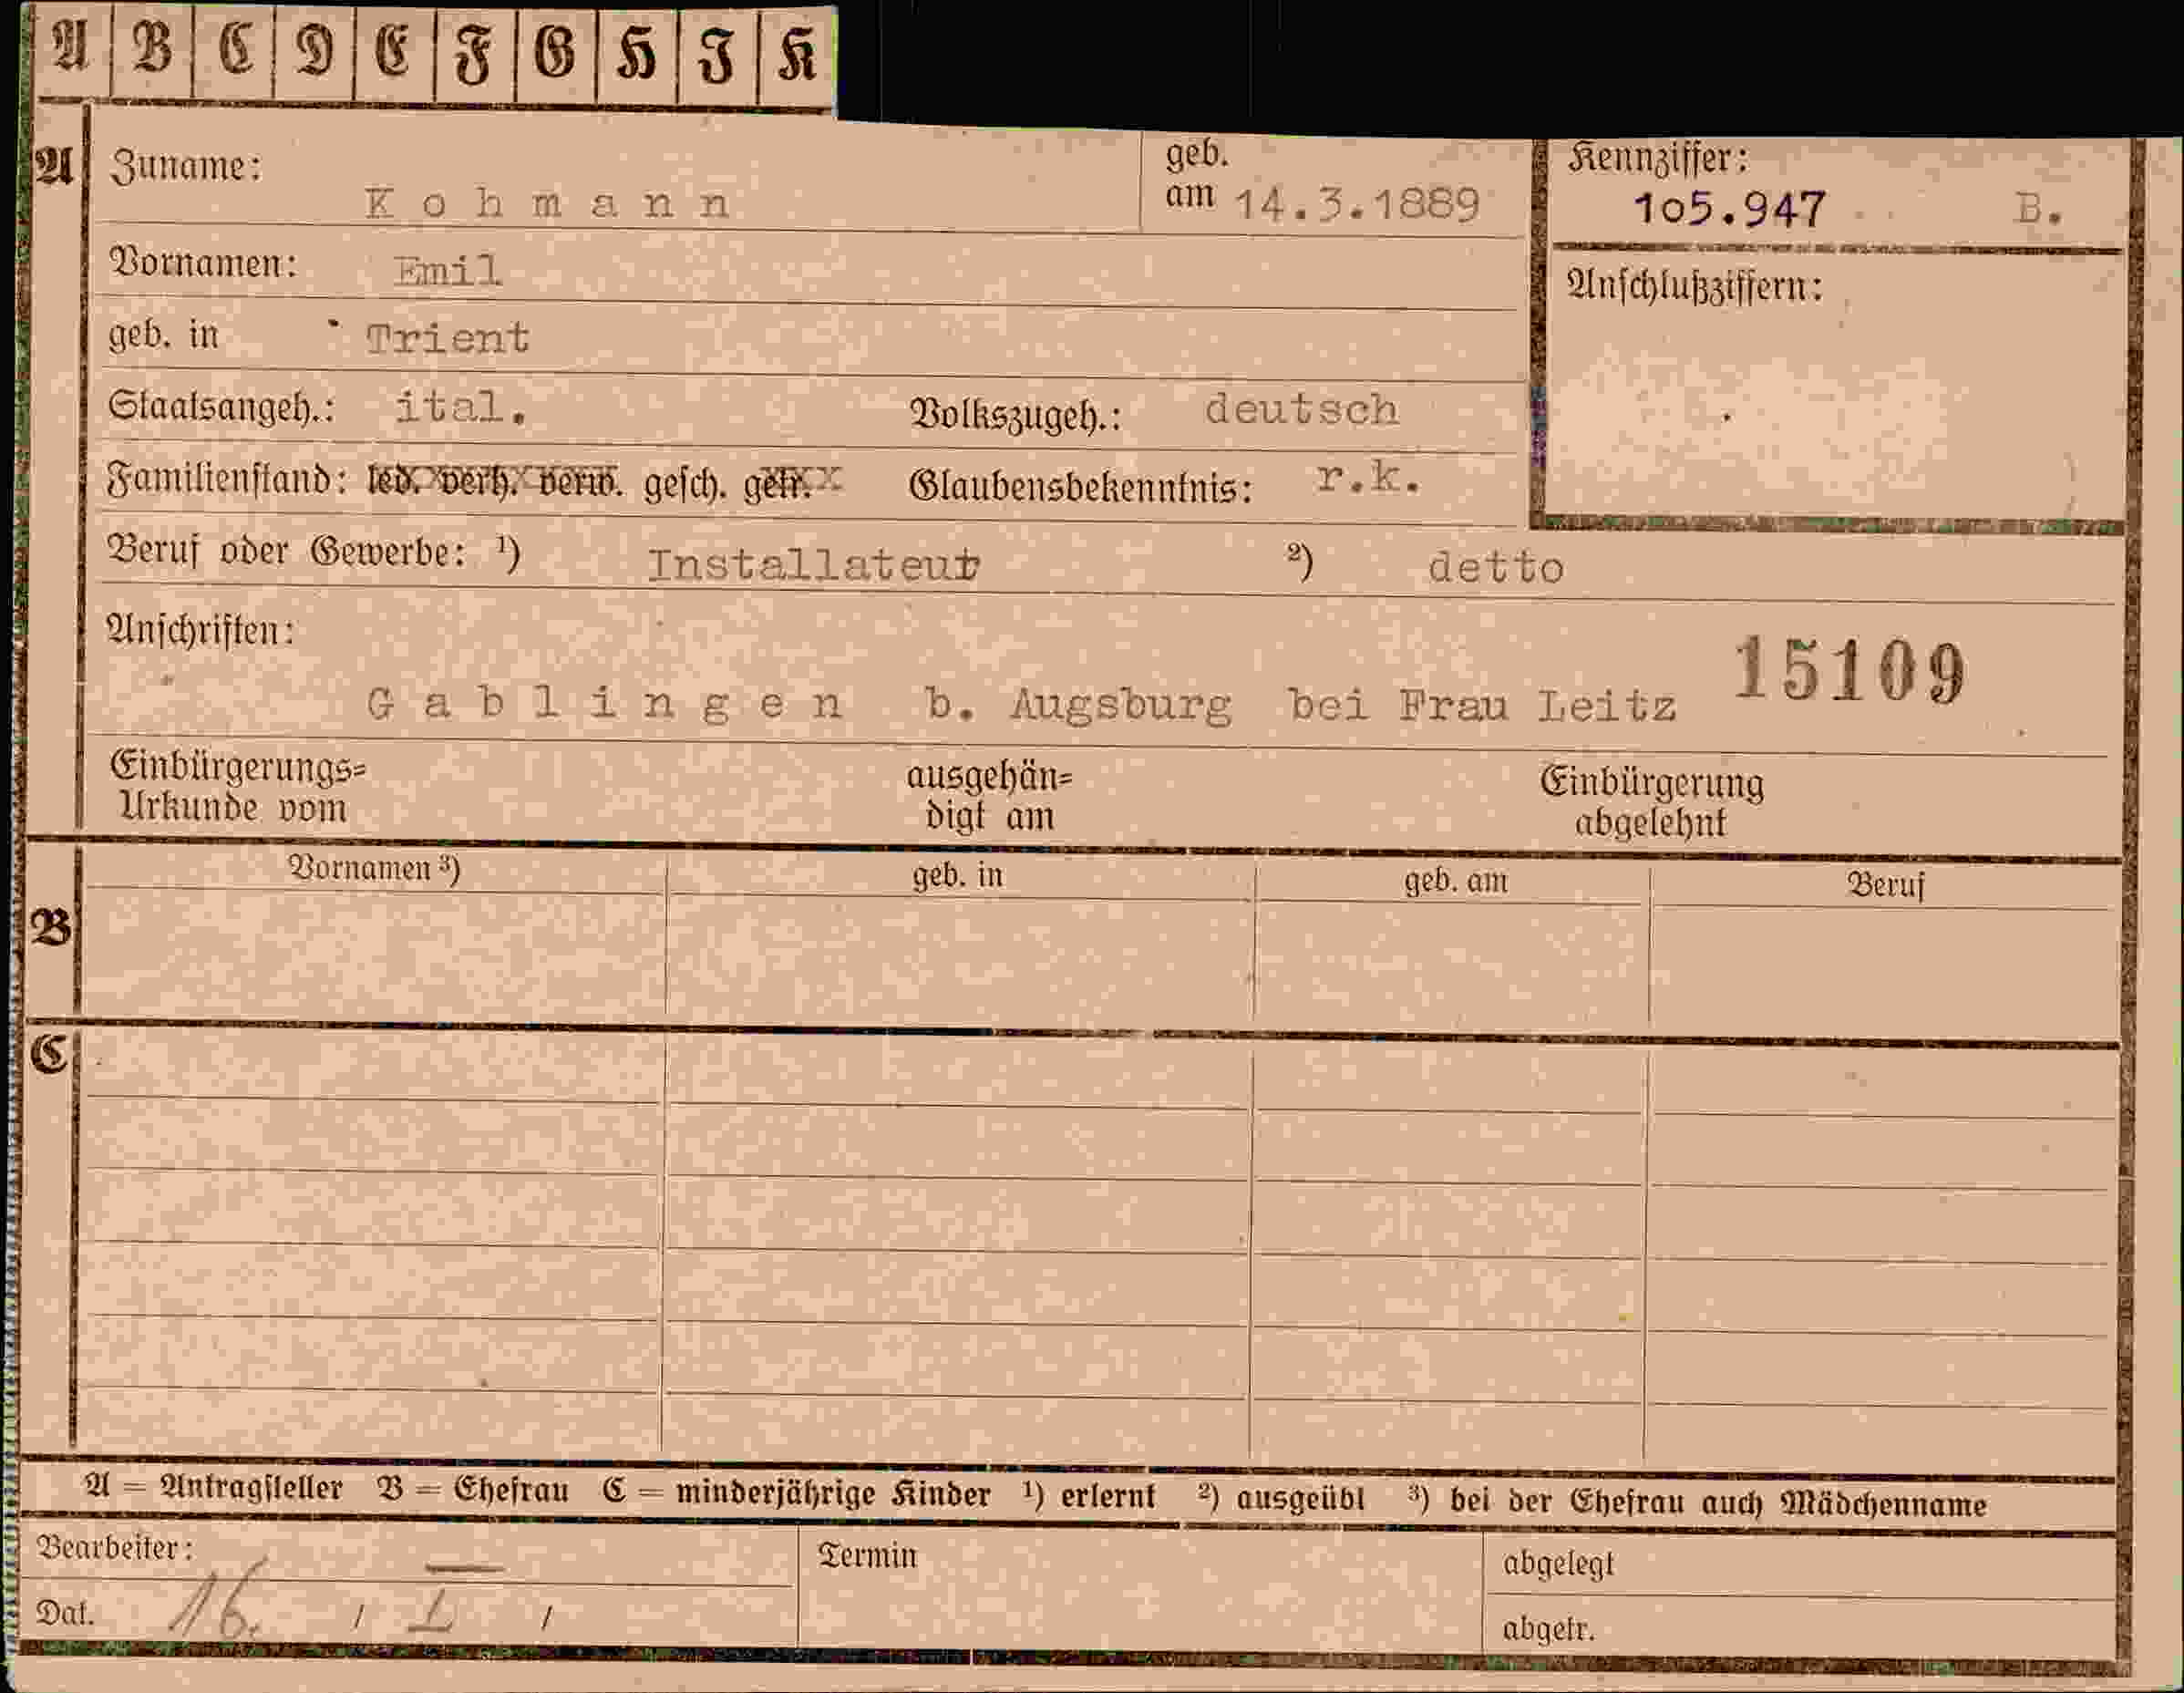 A B C D E F G H I K
A Zuname: Kohmann geb. am 14.3.1889 Kennziffer: 105.947 B.
Vornamen: Emil Anschlußziffern:
geb. in Trient
Staatsangeh.: ital. Volkszugeh.: deutsch
Familienstand: led. verh. verw. gesch. getr. Glaubensbekenntnis: r.k.
Beruf oder Gewerbe: ¹) Installateur ²) detto
Anschriften: 15109
Gablingen b. Augsburg bei Frau Leitz
Einbürgerungs= ausgehän= Einbürgerung
Urkunde vom digt am abgelehnt
Vornamen ³) geb. in geb. am Beruf
B
C
A = Antragsteller B = Ehefrau C = minderjährige Kinder ¹) erlernt ²) ausgeübt ³) bei der Ehefrau auch Mädchenname
Bearbeiter: Termin abgelegt
Dat. 16. / I / abgetr.